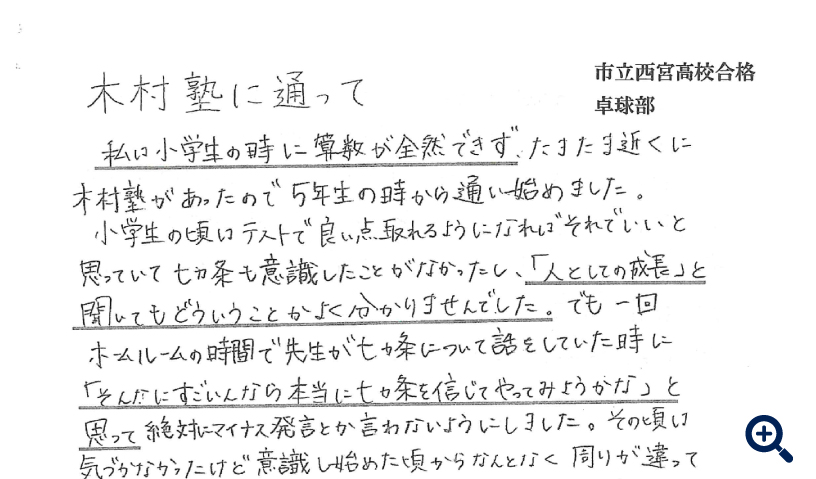 市立西宮高校合格
卓球部
木村塾に通って
私は小学生の時に算数が全然できず、たまたま近くに
木村塾があったので5年生の時から通い始めました。
小学生の頃はテストで良い点取れるようになればそれでいいと
思っていて七カ条も意識したことがなかったし、「人としての成長」と
聞いてもどういうことかよく分かりませんでした。でも一回
ホームルームの時間で先生が七カ条について話をしていた時に
「そんなにすごいんなら本当に七カ条を信じてやってみようかな」と
思って絶対にマイナス発言とか言わないようにしました。その頃は
気づかなかったけど意識し始めた頃からなんとなく周りが違って